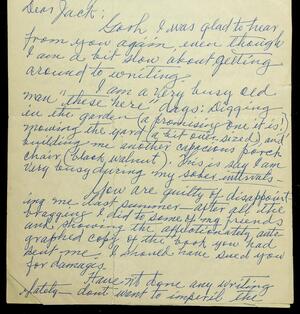 Dear Jack:
Gosh, I was glad to hear
from you again, even though
I am a bit slow about getting
around to writing.
I am a very busy old
man "these here" days: Digging
in the garden (a promising one it is!)
mowing the yard (a bit over sized), and
building me another capacious porch
chair (black walnut). This is say I am
very busy during my sober intervals.
You are guilty of disappoint-
ing me last summer — after all the
bragging I did to some of my friends
and showing the affectionately auto
graphed copy of the book you had
sent me. I should have sued you
for damages.
Haven't done any writing
lately — don't want to imperil the